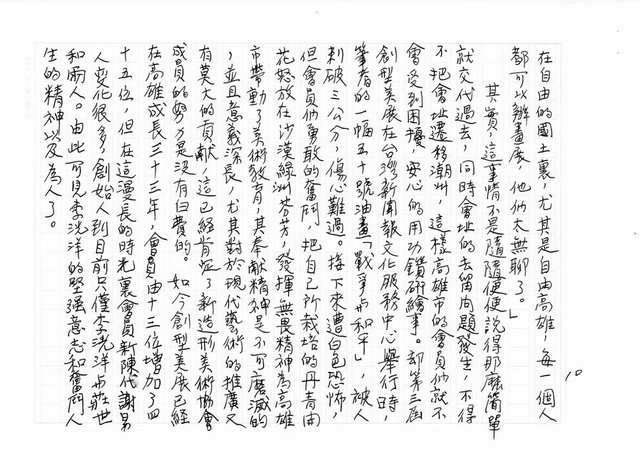 10
在自由的國土裏，尤其是自由高雄，每一個人
都可以辦畫展，他們太無聊了。」
其實，這事情不是隨隨便便說得那麼簡單
就交代過去，同時會址的去留問題發生，不得
不把會址遷移潮州，這樣高雄市的會員們就不
會受到困擾，安心的用功鑽研繪事。却第三屆
創型美展在台灣新聞報文化服務中心舉行時，
筆者的一幅五十號油畫「戰爭与和平」，被人
刺破三公分，傷心難過。接下來遭白色恐怖，
但會員們勇敢的奮鬥，把自己所栽培的丹青開
花怒放在沙漠綠洲芬芳，發揮無畏精神為高雄
市帶動了美術教育，其奉獻精神是不可磨滅的
，並且意義深長，尤其對於現代藝術的推廣又
有莫大的貢献，這已經肯定了新造形美術協會
成員的努力是沒有白費的。如今創型美展已經
在高雄成長三十三年，會員由十三位增加了四
十五位，但在這漫長的時光裏會員新陳代謝另
人变化很多，創始人到目前只僅李洸洋与莊世
和兩人。由此可見李洸洋的堅强意志和奮鬥人
生的精神以及為人了。